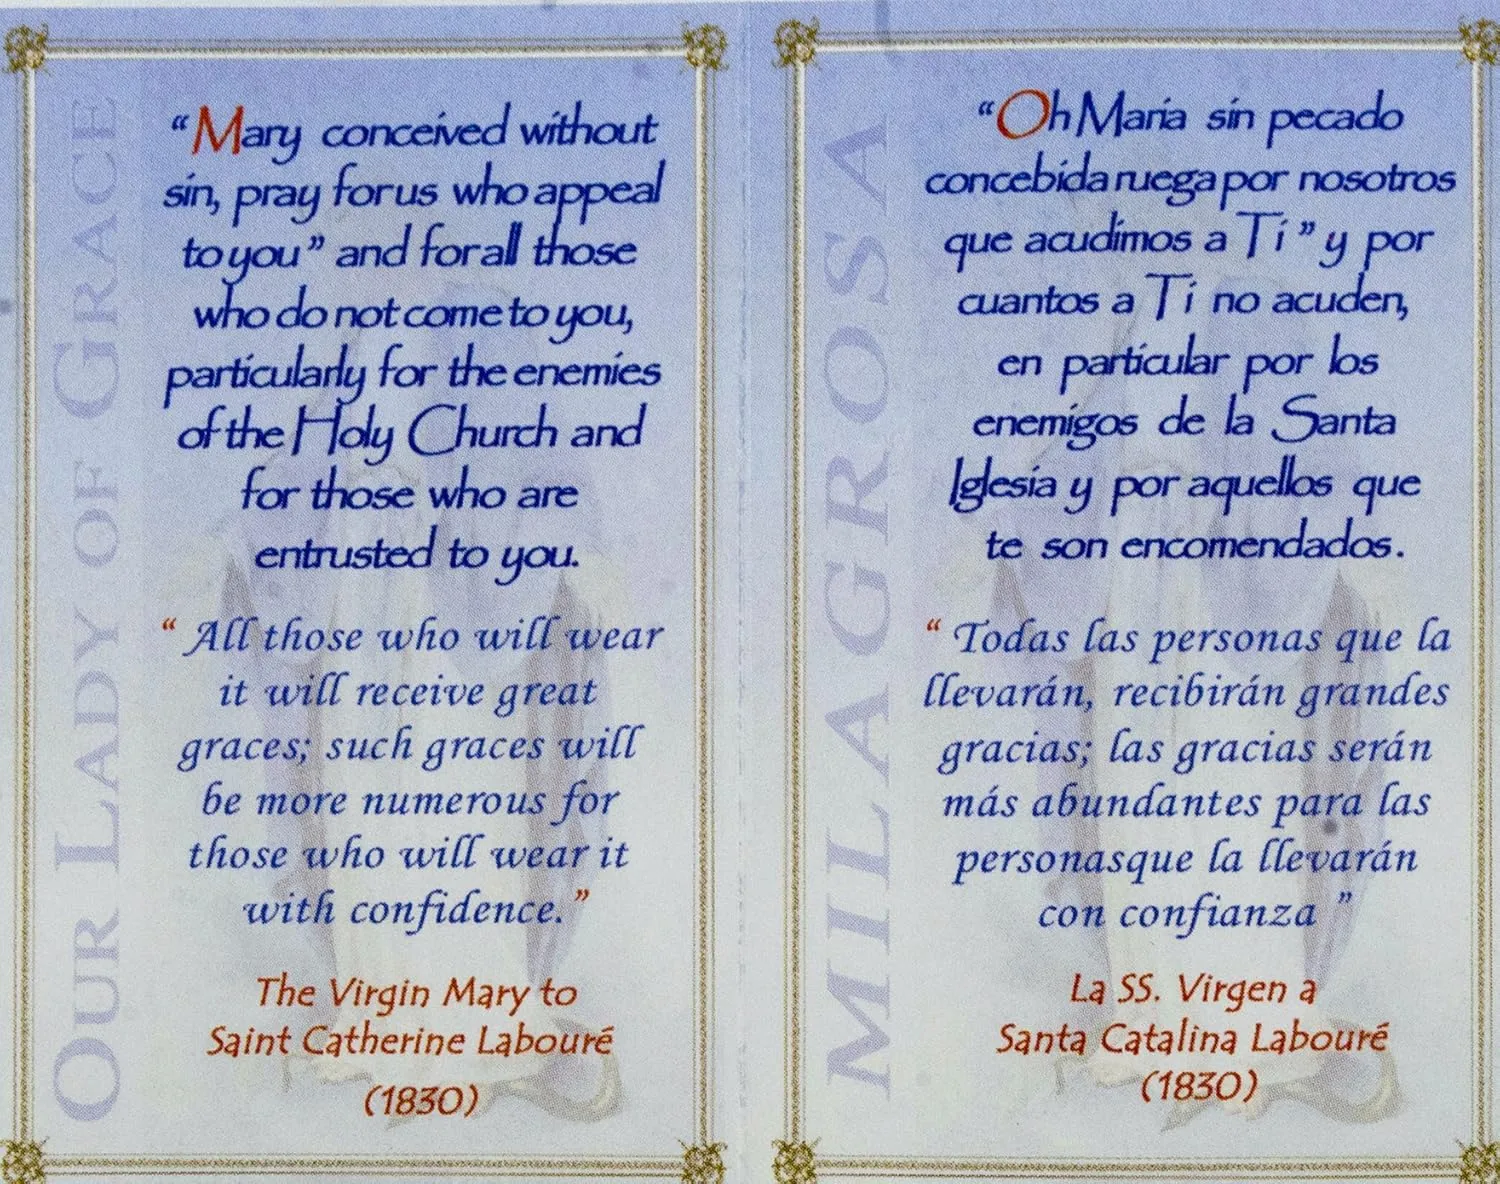 OUR LADY OF GRACE
“Mary conceived without
sin, pray for us who appeal
to you” and for all those
who do not come to you,
particularly for the enemies
of the Holy Church and
for those who are
entrusted to you.
“ All those who will wear
it will receive great
graces; such graces will
be more numerous for
those who will wear it
with confidence.”
The Virgin Mary to
Saint Catherine Labouré
(1830)
MILAGROSA
“Oh María sin pecado
concebida ruega por nosotros
que acudimos a Ti ” y por
cuantos a Ti no acuden,
en particular por los
enemigos de la Santa
Iglesia y por aquellos que
te son encomendados.
“ Todas las personas que la
llevarán, recibirán grandes
gracias; las gracias serán
más abundantes para las
personasque la llevarán
con confianza ”
La SS. Virgen a
Santa Catalina Labouré
(1830)